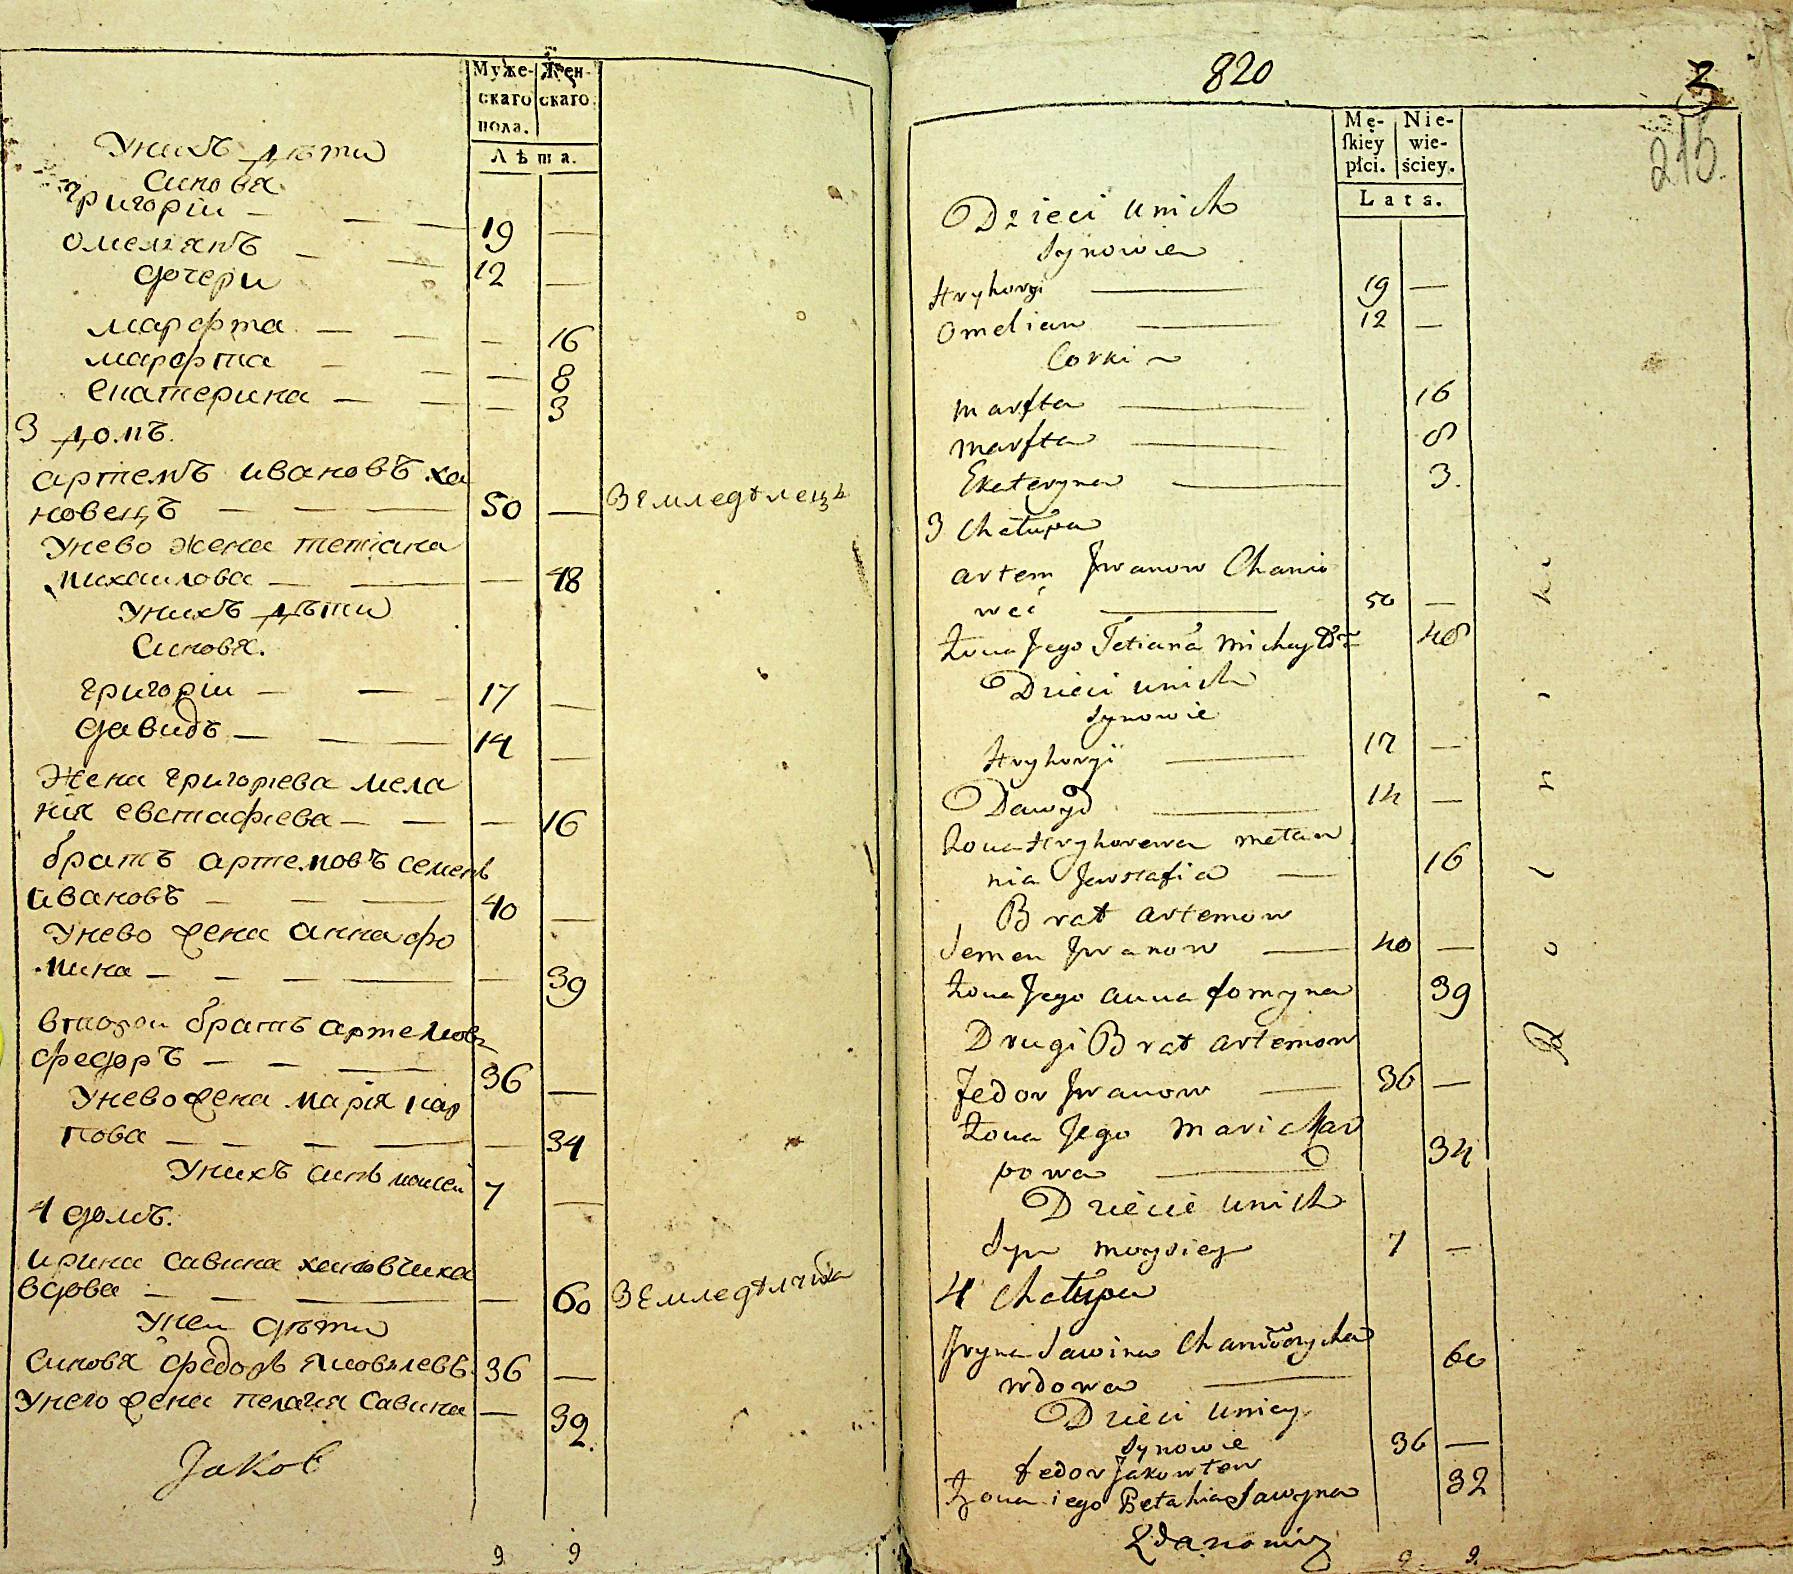 Муже-
скаго
пола.
Жен-
скаго.
Лѣта.
Унихъ дѣти
Синовя
григорiи — 19 —
омелянъ — 12 —
дочери
марфта — — 16
марфта — — 8
екатерина — — 3
3 домъ.
артемъ ивановъ ха
новецъ — 50 — Земледѣлецъ
Унево жена тетiана
михаилова — — 48
Унихъ дѣти
Синовя.
григорiи — 17 —
давидъ — 14 —
Жена григорiева мела
нiя евстафiева — — 16
братъ артемовъ семенъ
ивановъ — 40 —
Унево жена анна фо
мина — — 39
втори братъ артемовъ
федоръ — 36 —
Унево жена марiя кар
пова — — 34
Унихъ синъ моисеи 7 —
4 домъ.
ирина савина хановчиха
вдова — — 60 Земледѣлчиха
Унеи дѣти
Синовя федоръ яковлевъ 36 —
Унего жена пелагия Савина — 32.
Jakob
9 9
820
2
215.
Mę-
ſkiey
płci.
Nie-
wie-
ściey.
Lata.
Dzieci unich
Synowie
Hryhoryi — 19 —
Omelian — 12 —
Corki
marfta — 16
marfta — 8
Ekateryna — 3.
3 Chałupa
artem Jwanow Chanio
weć — 50 —
Żona Jego Tetiana Michayło 48
Dzieci unich
Synowie
Hryhoryi — 17 —
Dawyd — 14 —
Żona Hryhorewa mełan
nia Jewstafia — 16
Brat artemow
Semen Jwanow — 40 —
Żona Jego anna fomyna 39
Drugi Brat artemow
Fedor Jwanow — 36 —
Żona Jego Mari Kar
powa — 34
Dziecie unich
Syn moysiey 7 —
4 Chałupa
Jryna Sawina Chaniowczycha
wdowa — 60
Dzieci uniey
Synowie
fedor Jakowlew 36 —
Żona iego Pełahia Sawyna 32
Rolniki
9. 9.